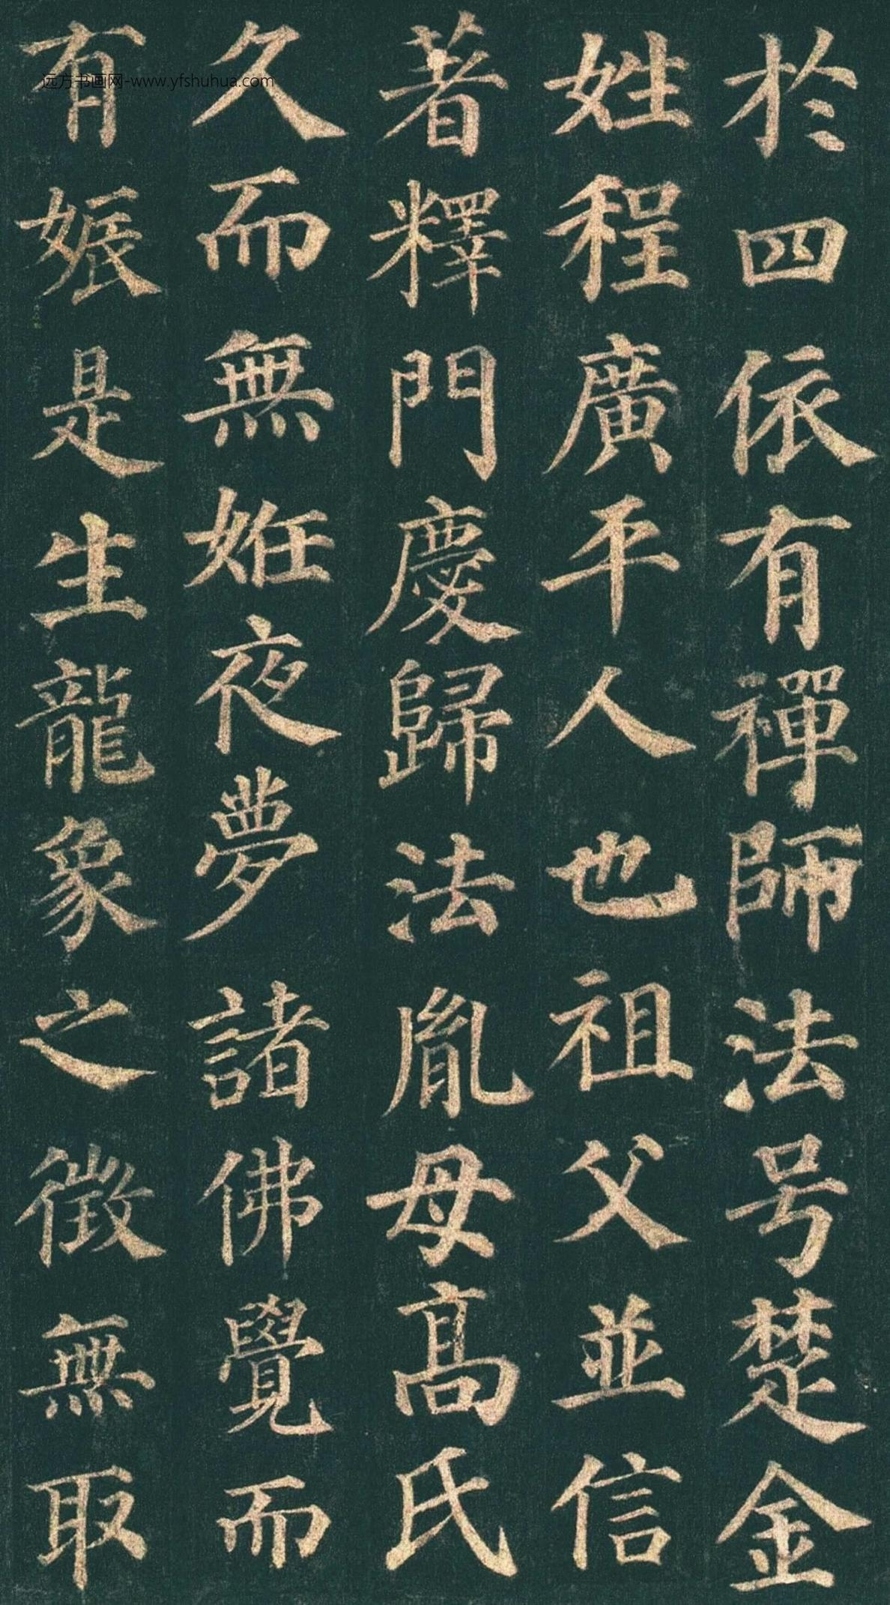 於四依有禪師法号楚金
姓程廣平人也祖父並信
著釋門慶歸法胤母高氏
久而無姙夜夢諸佛覺而
有娠是生龍象之徵無取
远方书画网-www.yfshuhua.com